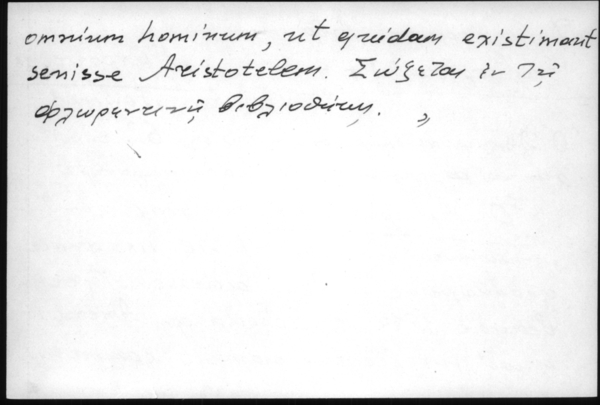 omnium hominum, ut quidam existimant
senisse Aristotelem. Σώζεται ἐν τῇ
φλωρεντινῇ βιβλιοθήκῃ. „